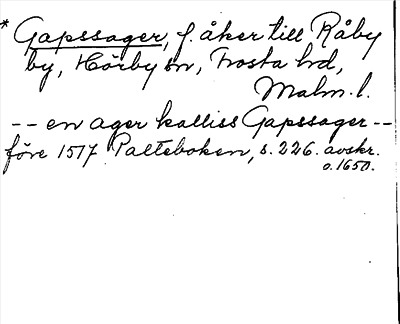 * Gapssager, f. åker till Råby
by, Hörby sn, Frosta hd,
Malm. l.
-- en ager kalliss Gapssager --
före 1517 Palteboken, s. 226. avskr.
o. 1650.